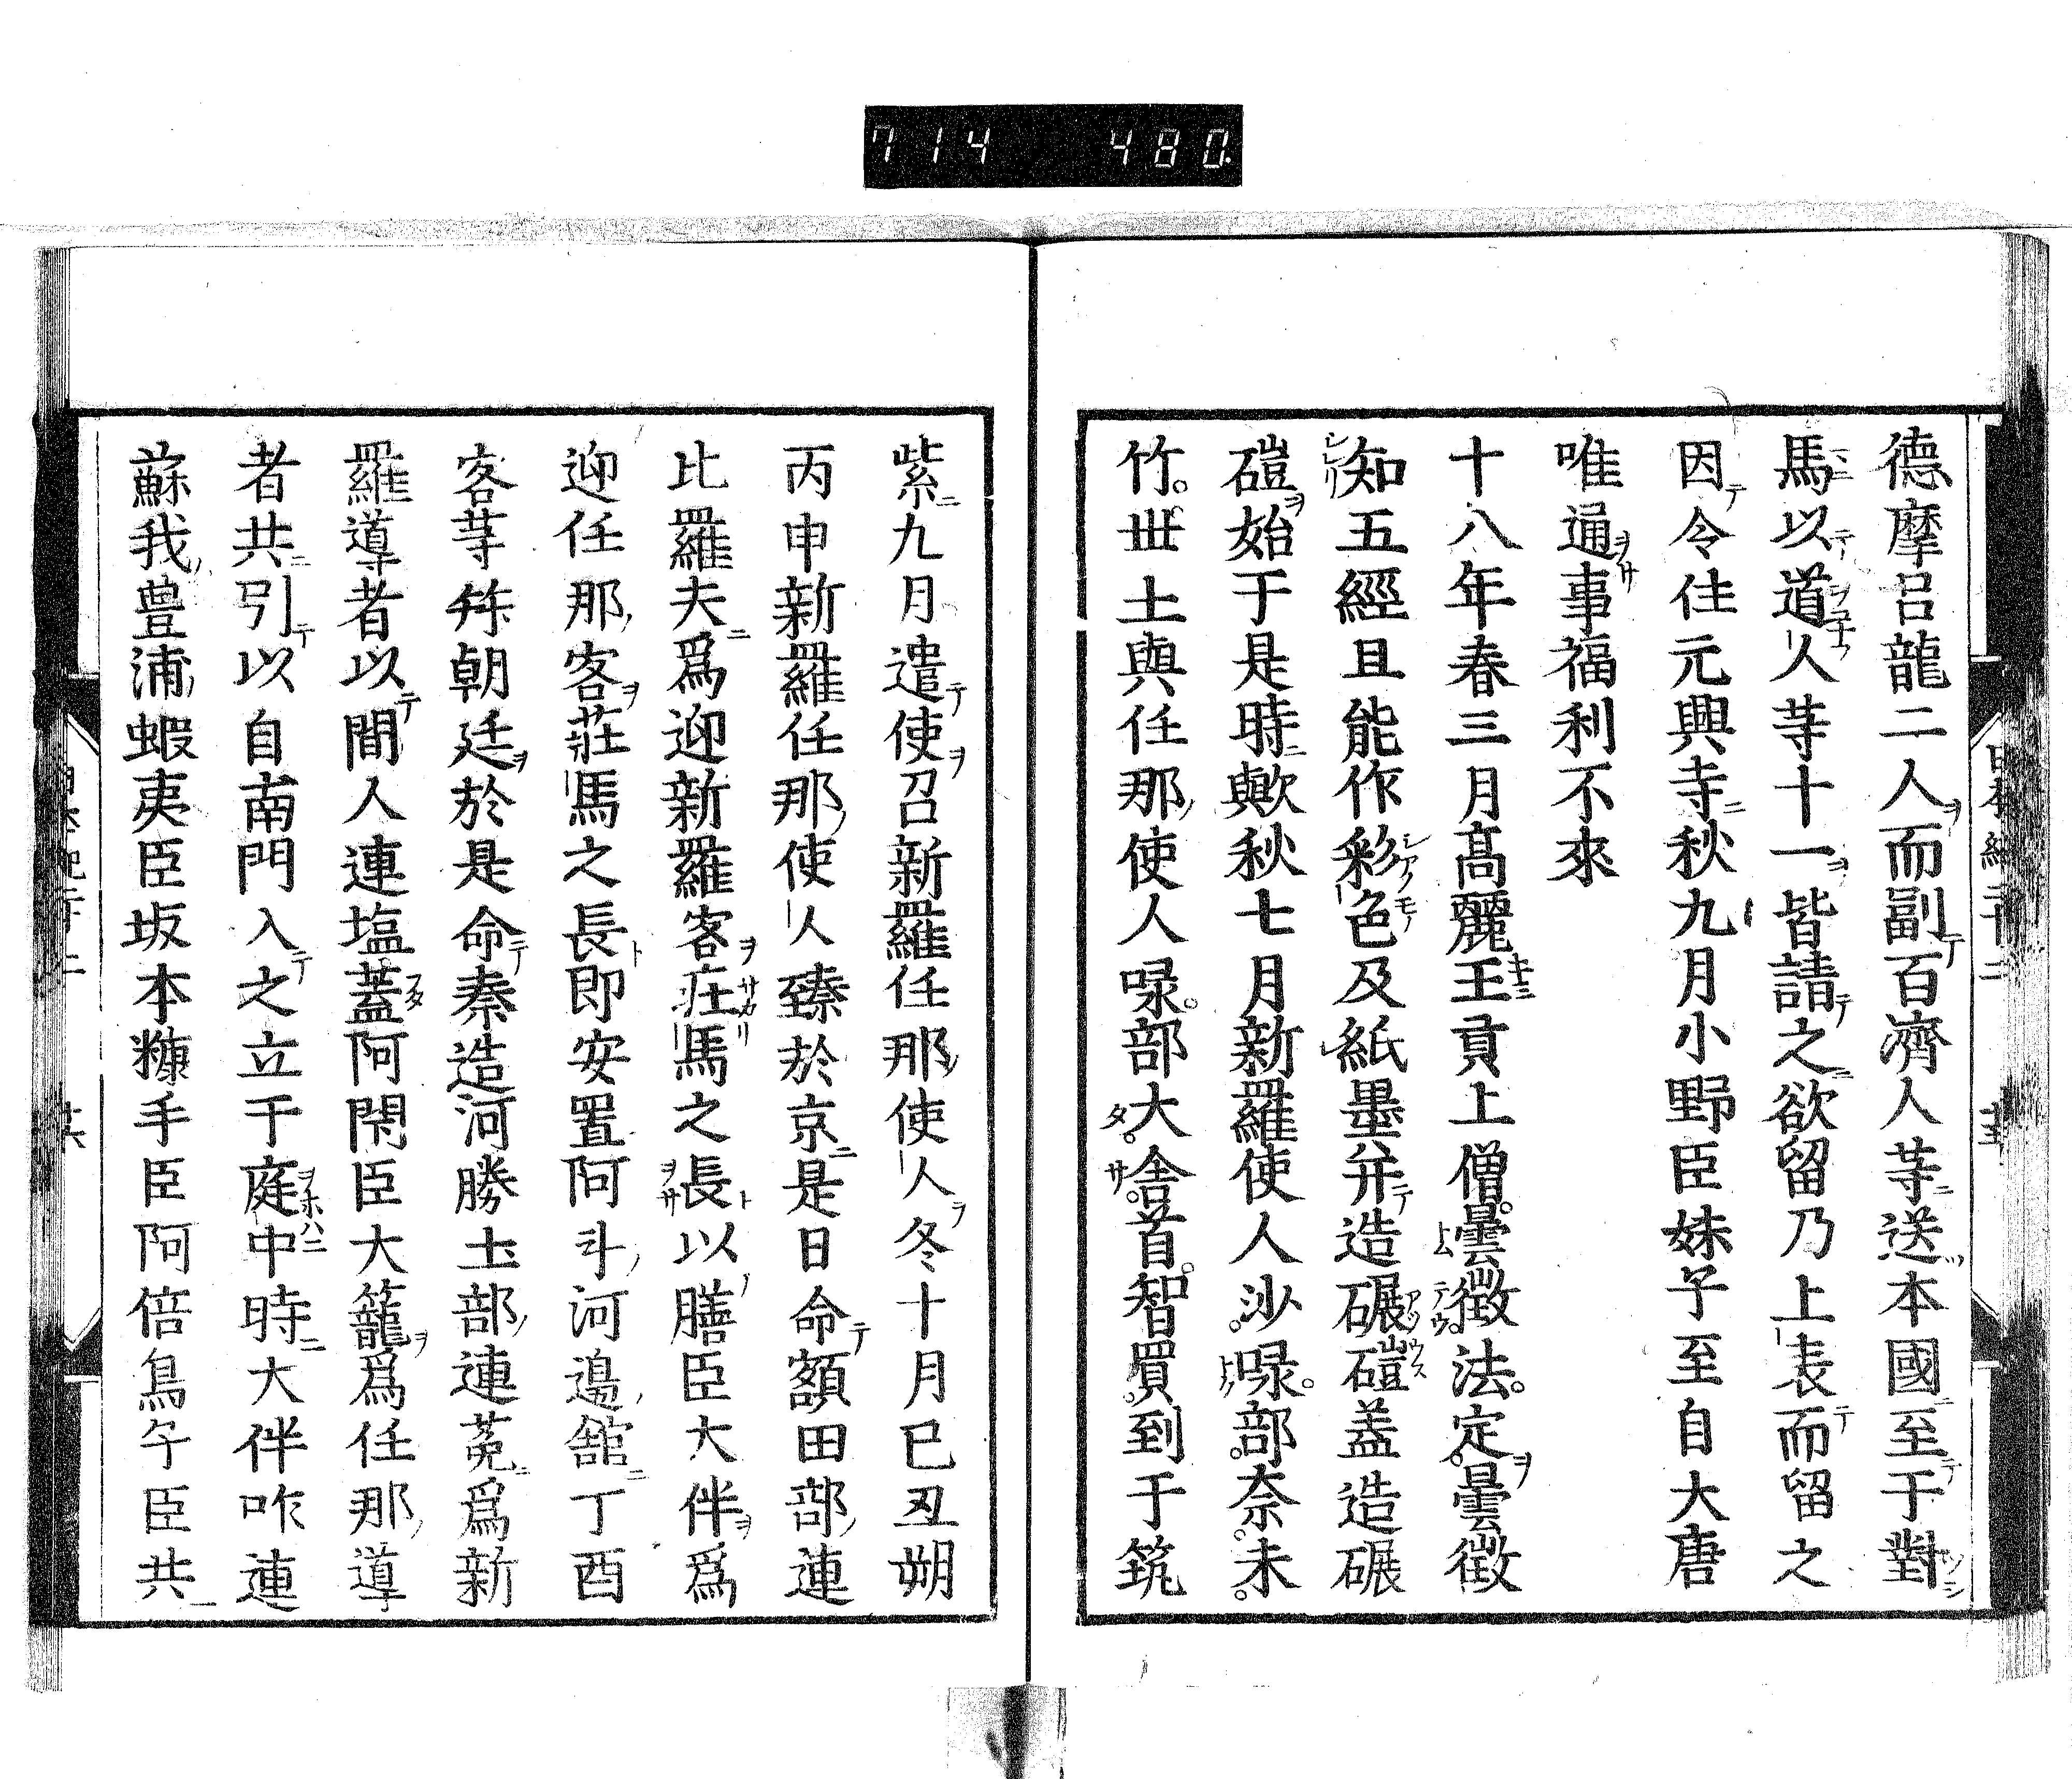 714 480
德摩呂龍二人而副百濟人等送本國至于對
馬以道人等十一皆請之欲留乃上表而留之
因令住元興寺秋九月小野臣妹子至自大唐
唯通事福利不來
十八年春三月髙麗王貢上僧曇徵法定曇徵
知五經且能作彩色及紙墨幷造碾磑盖造碾
磑始于是時歟秋七月新羅使人沙㖨部奈未
竹丗士與任那使人㖨部大舍首智買到于筑
紫九月遣使召新羅任那使人冬十月己丑朔
丙申新羅任那使人臻於京是日命額田部連
比羅夫爲迎新羅客莊馬之長以膳臣大伴爲
迎任那客莊馬之長即安置阿斗河邉舘丁酉
客等拜朝廷於是命秦造河勝土部連菟爲新
羅導者以間人連塩蓋阿閇臣大籠爲任那導
者共引以自南門入之立于庭中時大伴咋連
蘇我豊浦蝦夷臣坂本糠手臣阿倍鳥子臣共